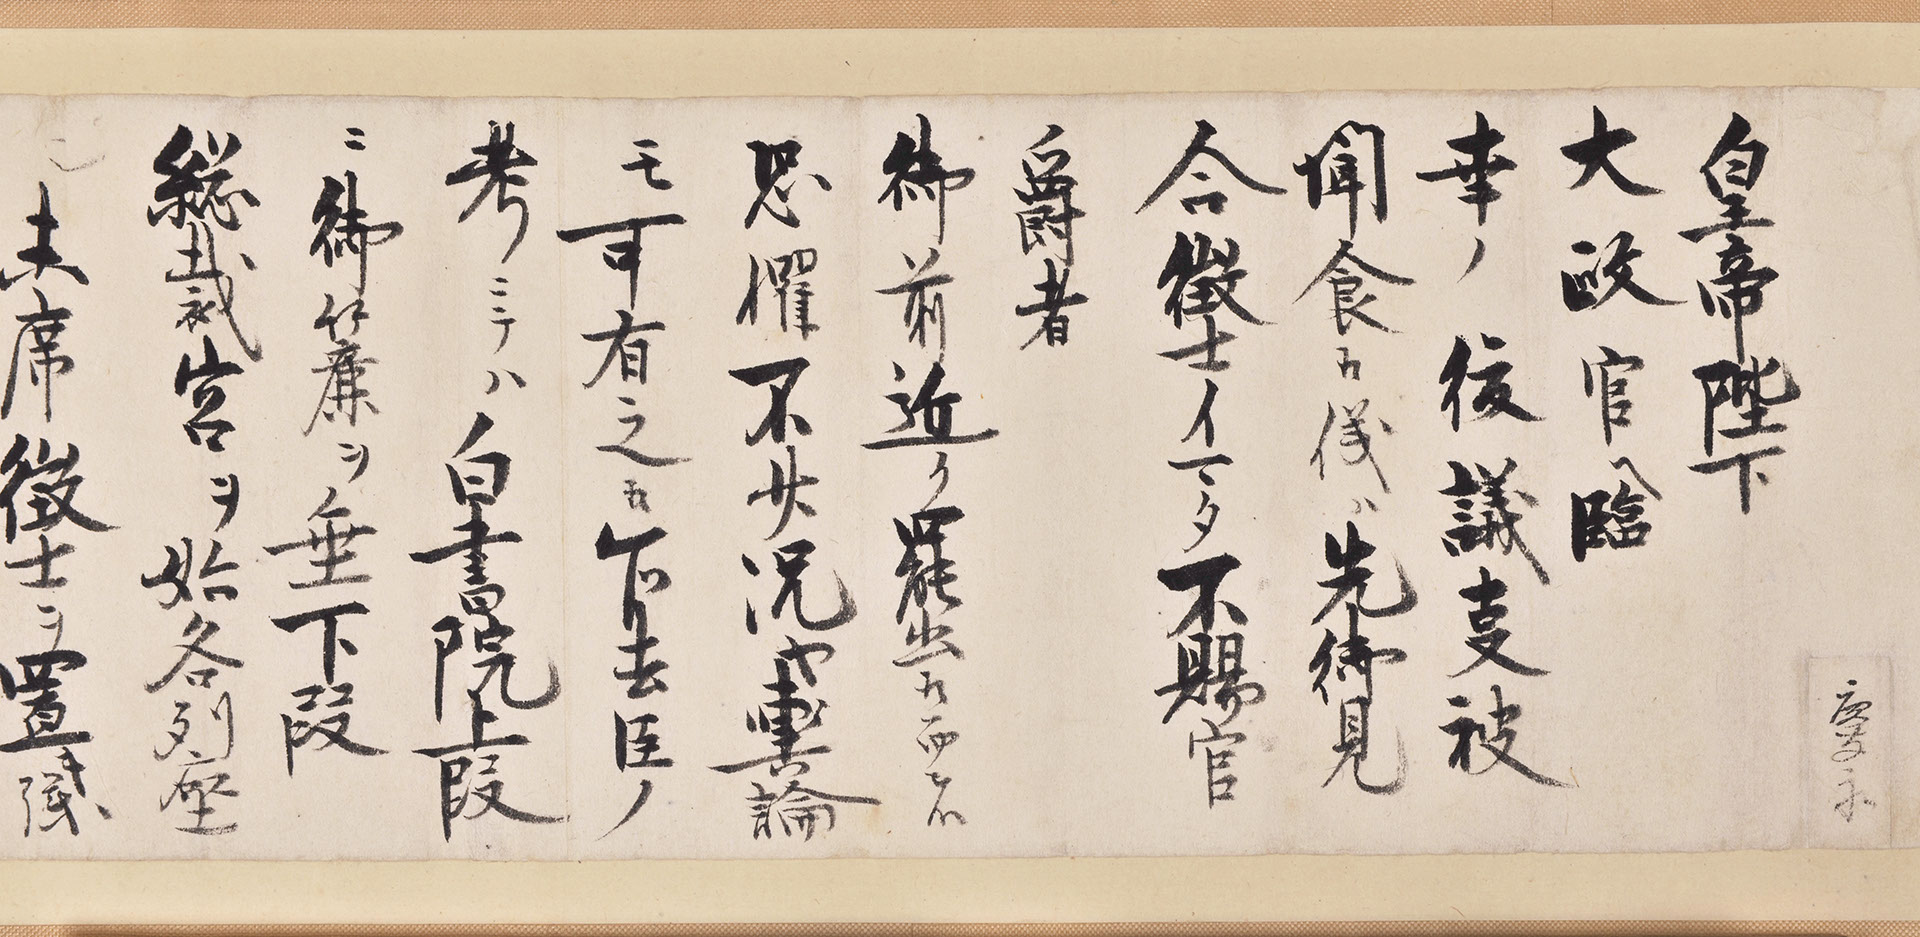 慶永
皇帝陛下
大政官へ臨
幸ノ後議支被
聞食候儀ハ先御見
合徴士イマタ不賜官
爵者
御前近ク罷出候而者
恐懼不少況や衆論
モ可有之候
考ミテハ白書院上段
ニ御簾ヲ垂下段
総裁宮ヲ始各列座
末席徴士ヲ置き議